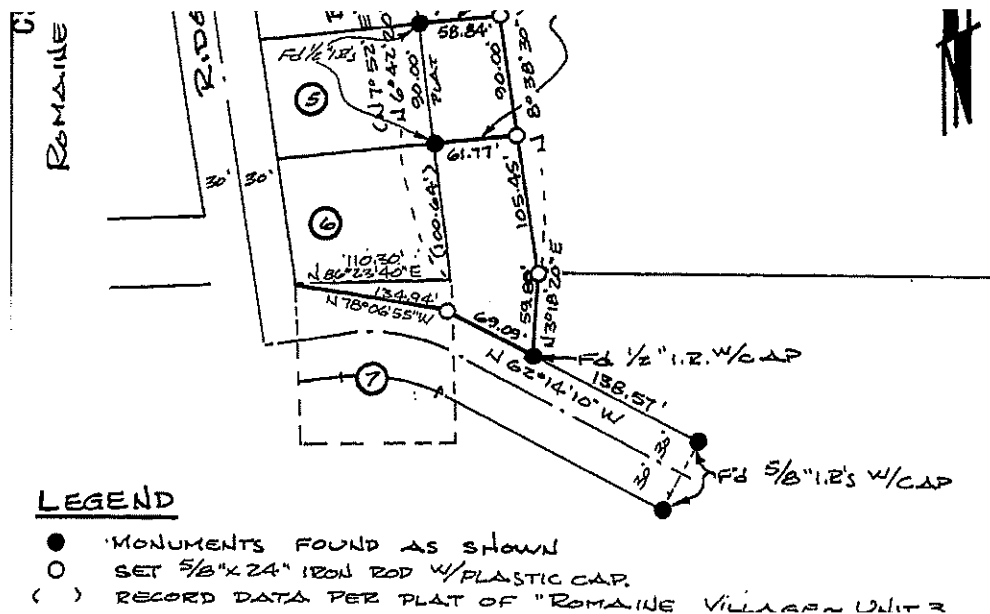 ROMAINE
58.84'
Fd 1/2" I.R's
(N 7° 52'
N 6° 42' 20"
E
90.00'
PLAT
90.00'
8° 38' 30"
5
61.77'
30'
30'
6
(100.64')
105.45'
110.30'
N 86° 23' 40" E
134.94'
N 78° 06' 55" W
69.09'
N 3° 18' 20" E
Fd 1/2" I.R. W/CAP
N 62° 14' 10" W
138.57'
7
30'
30'
F'd 5/8" I.R's W/CAP
LEGEND
MONUMENTS FOUND AS SHOWN
SET 5/8" x 24" IRON ROD W/PLASTIC CAP.
( ) RECORD DATA PER PLAT OF "ROMAINE VILLAGE UNIT